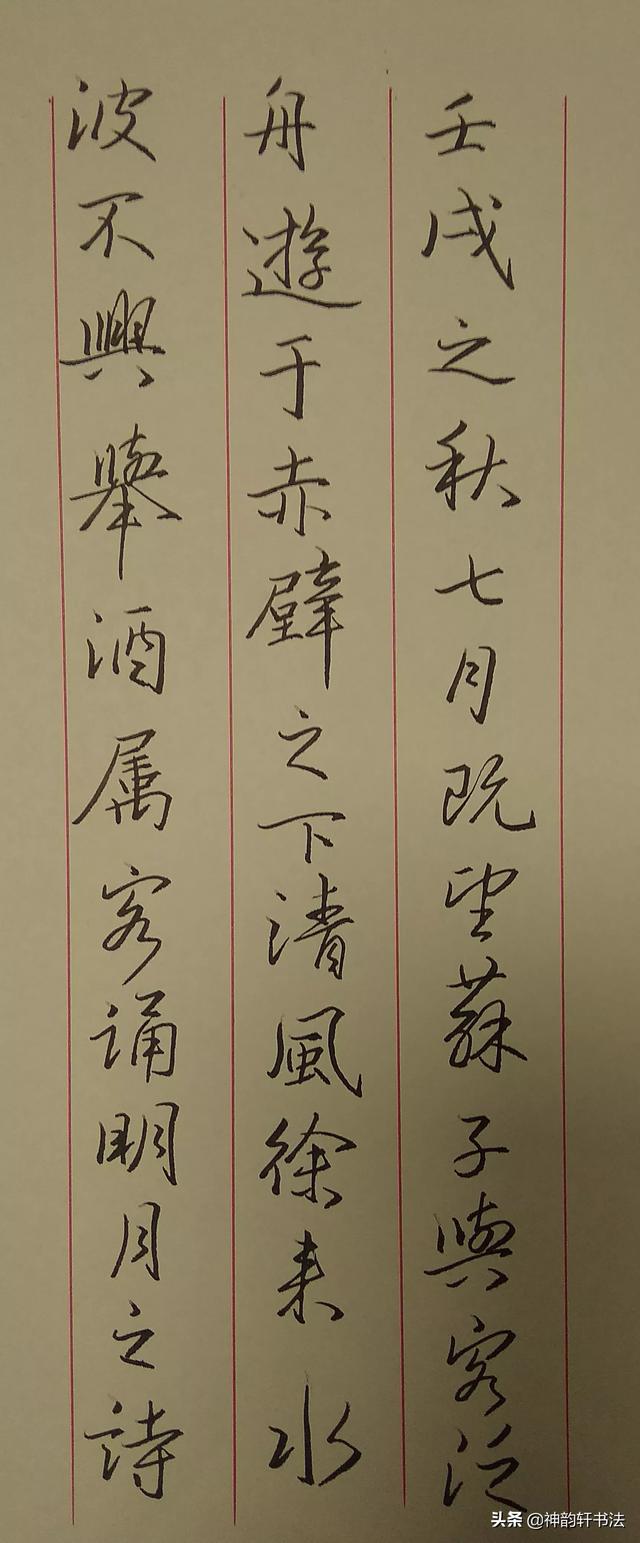 壬戌之秋七月既望蘇子與客泛
舟遊于赤壁之下清風徐来水
波不興舉酒属客誦明月之詩
头条 @神韵轩书法